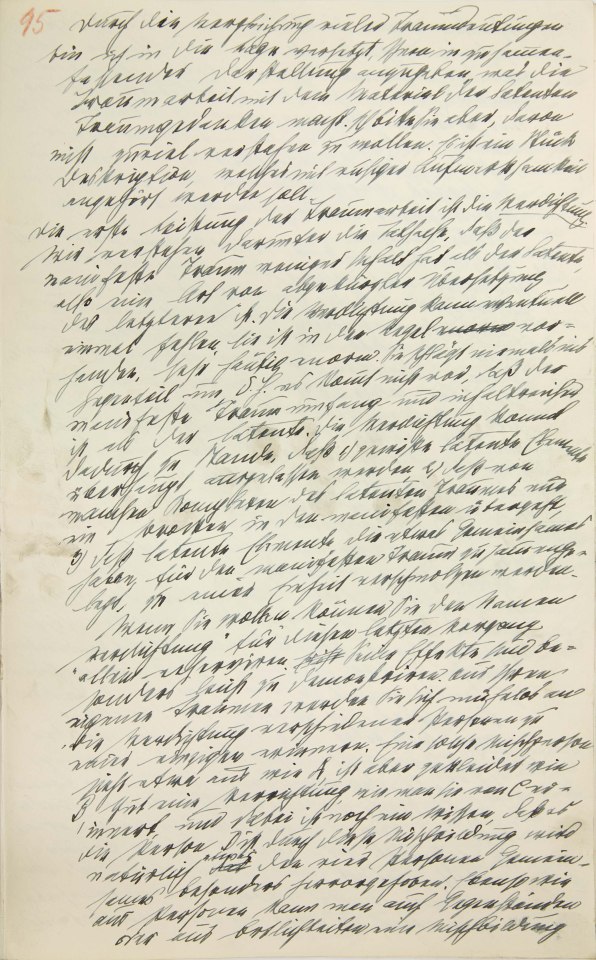 95
Durch die Vergleichung vieler Traumdeutungen
bin ich in die Lage versetzt Ihnen in zusammen-
fassender Darstellung anzugeben, was die
Traumarbeit mit dem Material der latenten
Traumgedanken macht. Ich bitte Sie aber, davon
nicht zuviel verstehen zu wollen. Es ist ein Stück
Deskription, welches mit ruhiger Aufmerksamkeit
angehört werden soll.
Die erste Leistung der Traumarbeit ist die Verdichtung.
Wir verstehen darunter die Tatsache, daß der
manifeste Traum weniger Inhalt hat als der latente,
also eine Art von abgekürzter Übersetzung
des letzteren ist. Die Verdichtung kann eventuell
einmal fehlen, sie ist in der Regel enorm vor-
handen, sehr häufig enorm. Sie schlägt niemals ins
Gegenteil um, d.h. es komt nicht vor, daß der
manifeste Traum umfang und inhaltreicher
ist als der latente. Die Verdichtung kommt
dadurch zu Stande, daß 1) gewisse latente Elemente
überhaupt ausgelassen werden 2) daß von
manchen Komplexen des latenten Traumes nur
ein Brocken in den manifesten übergeht,
3) daß latente Elemente die etwas Gemeinsames
haben, für den manifesten Traum zusammenge-
legt, zu einer Einheit verschmolzen werden.
Wenn Sie wollen, können Sie den Namen
"Verdichtung" für diesen letzten Vorgang
allein reserviren. Seine Effekte sind be-
sonders leicht zu demonstriren. Aus Ihren
eigenen Träumen werden Sie sich mühelos an
die Verdichtung verschiedener Personen zu
einer einzigen erinnern. Eine solche Mischperson
sieht etwa aus wie A, ist aber gekleidet wie
B, tut eine Verrichtung, wie man sie von C er-
innert, und dabei ist noch ein Wissen, daß es
die Person D ist. Durch diese Mischbildung wird
natürlich etwas den vier Personen Gemein-
sames besonders hervorgehoben. Ebenso wie
aus Personen kann man aus Gegenständen
oder aus Örtlichkeiten eine Mischbildung